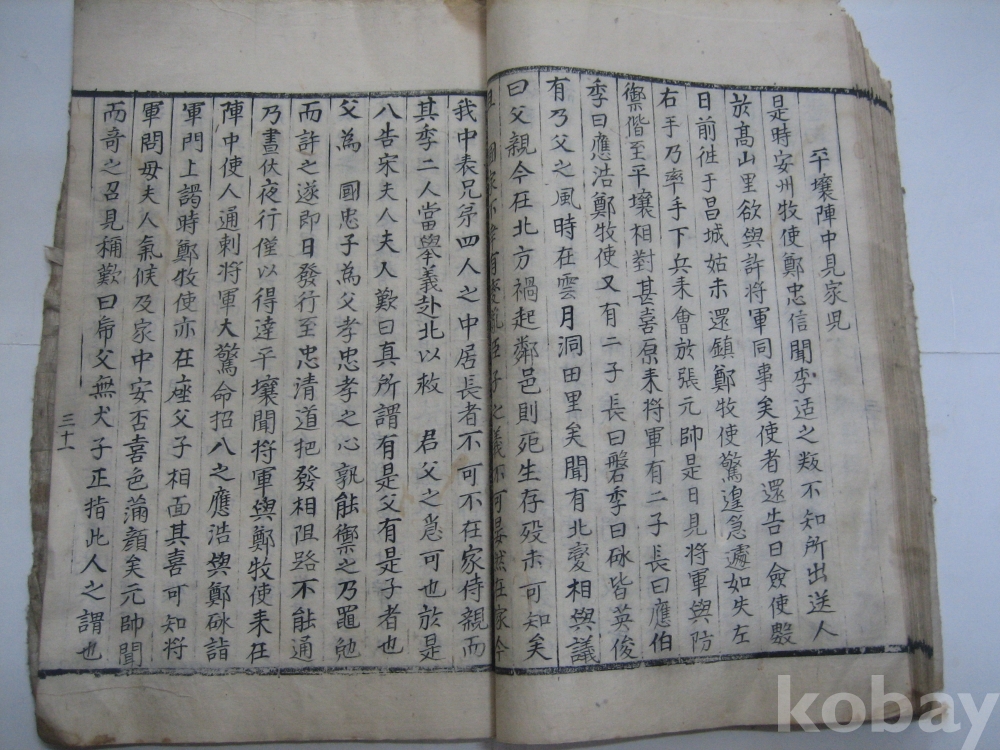 平壤陣中見家児
是時安州牧使鄭忠信聞李适之叛不知所出送人
於高山里欲與許將軍同事矣使者還告曰僉使數
日前徃于昌城姑未還鎮鄭牧使驚遑急遽如失左
右手乃率手下兵来會於張元帥是日見將軍與防
禦偕至平壤相對甚喜原来將軍有二子長曰應伯
季曰應浩鄭牧使又有二子長曰磐季曰砯皆英俊
有乃父之風時在雲月洞田里矣聞有北變相與議
曰父親今在北方禍起鄰邑則死生存殁未可知矣
國家不幸有變 臣子之義不可晏然在家今
我中表兄弟四人之中居長者不可不在家侍親而
其季二人當舉義赴北以救 君父之急可也於是
入告宋夫人夫人歎曰真所謂有是父有是子者也
父為 國忠子為父孝忠孝之心孰能禦之乃黽勉
而許之遂即日發行至忠清道把發相阻路不能通
乃晝伏夜行僅以得達平壤聞將軍與鄭牧使来在
陣中使人通刺將軍大驚命招入之應浩與鄭砯詣
軍門上謁時鄭牧使亦在座父子相面其喜可知將
軍問母夫人氣候及家中安否喜色滿顔矣元帥聞
而奇之召見稱歎曰 父無犬子正指此人之謂也
三十一
kobay